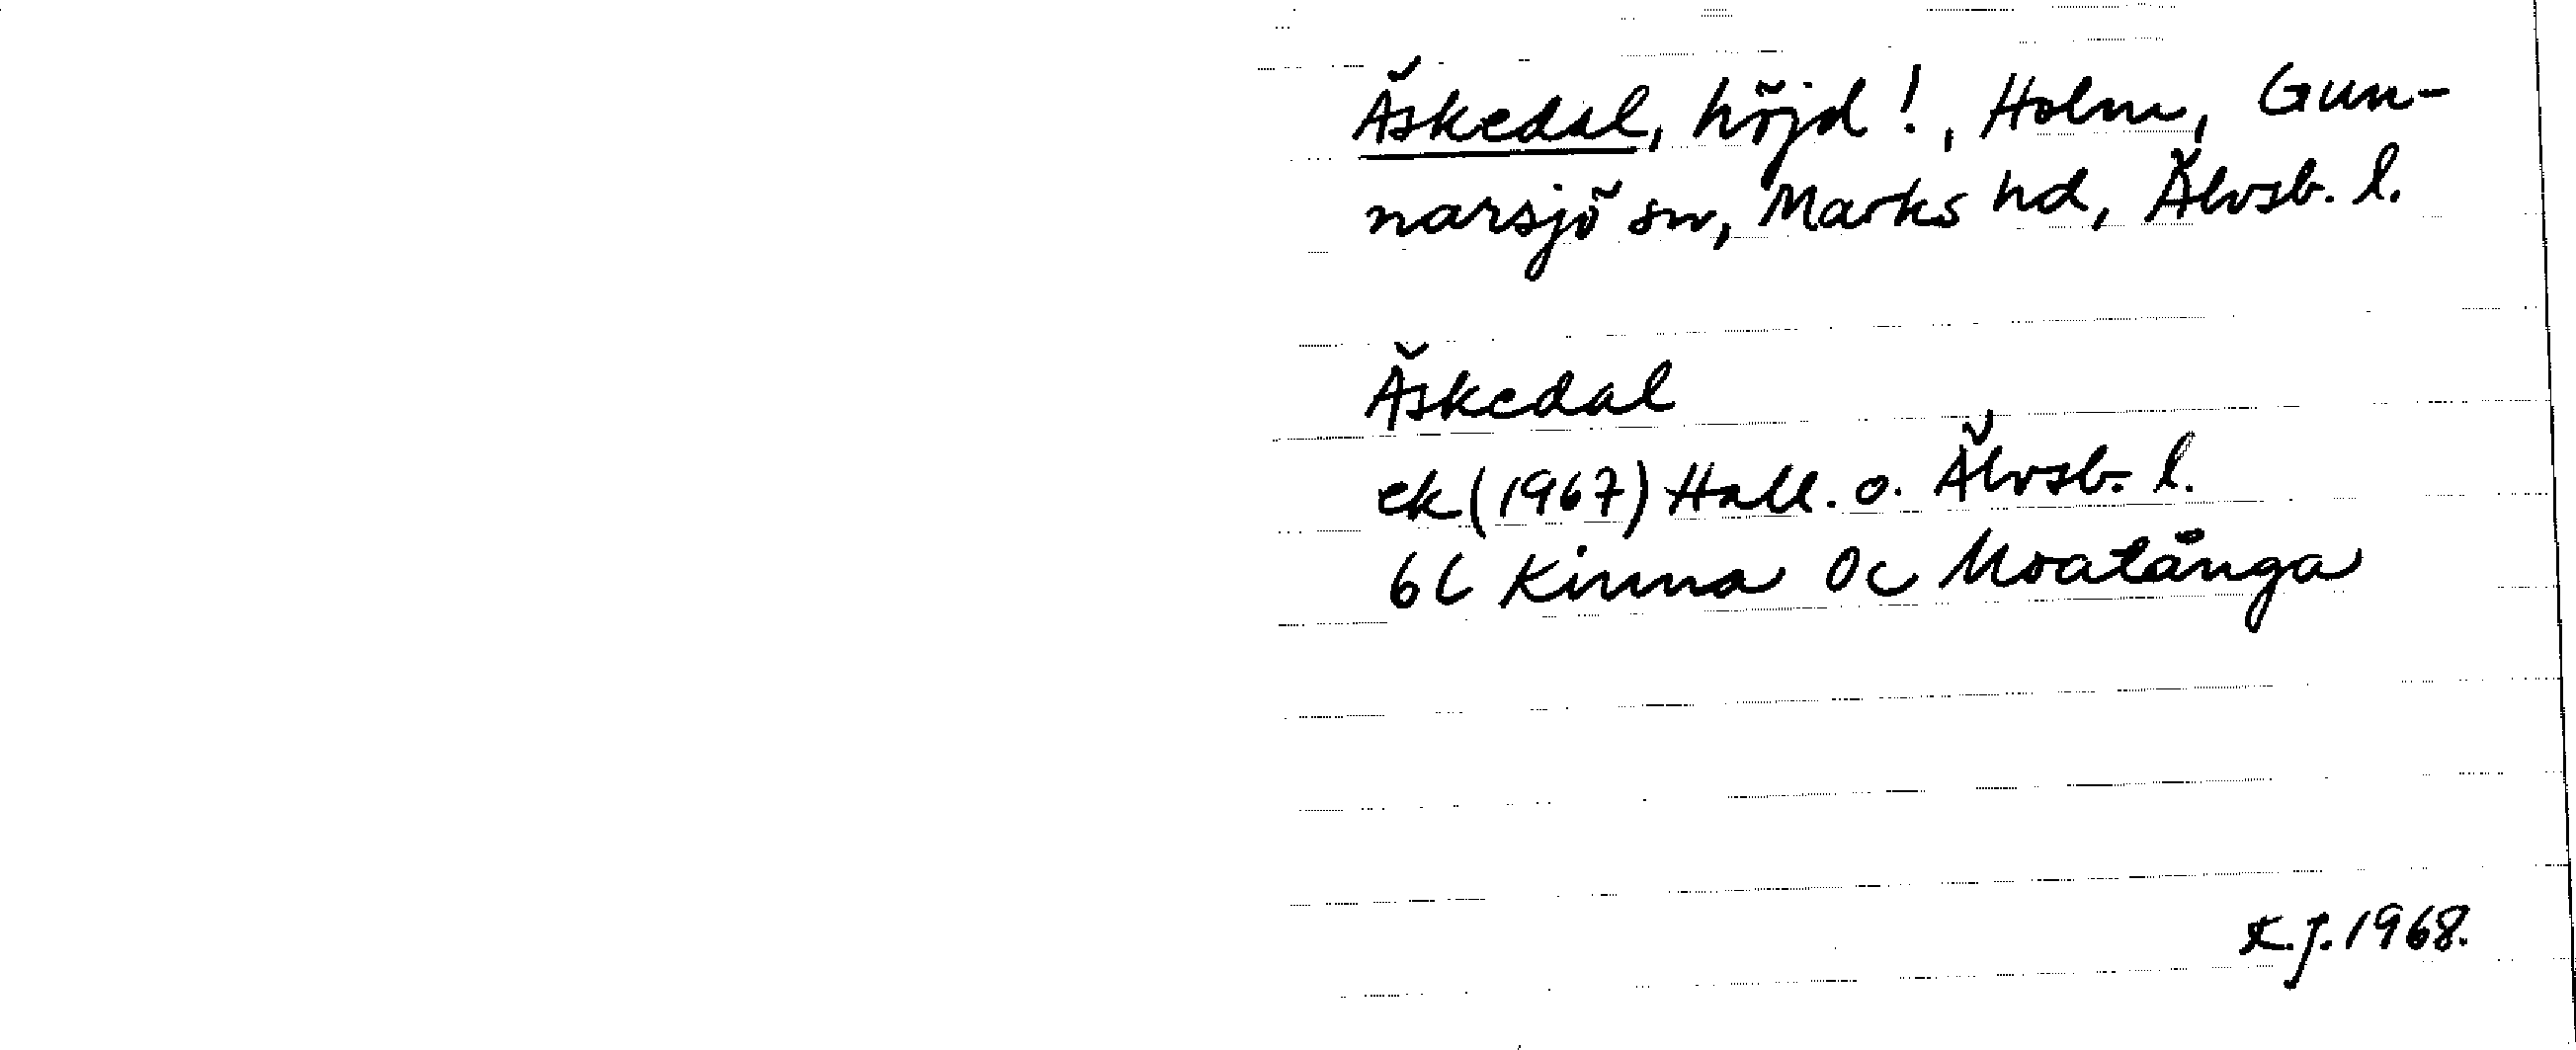 Äskedal, höjd!, Holm, Gun-
narsjö sn, Marks hd, Älvsb. l.
Äskedal
ek (1967) Hall. o. Älvsb. l.
6C Kinna 0c Moatånga
K.J. 1968.